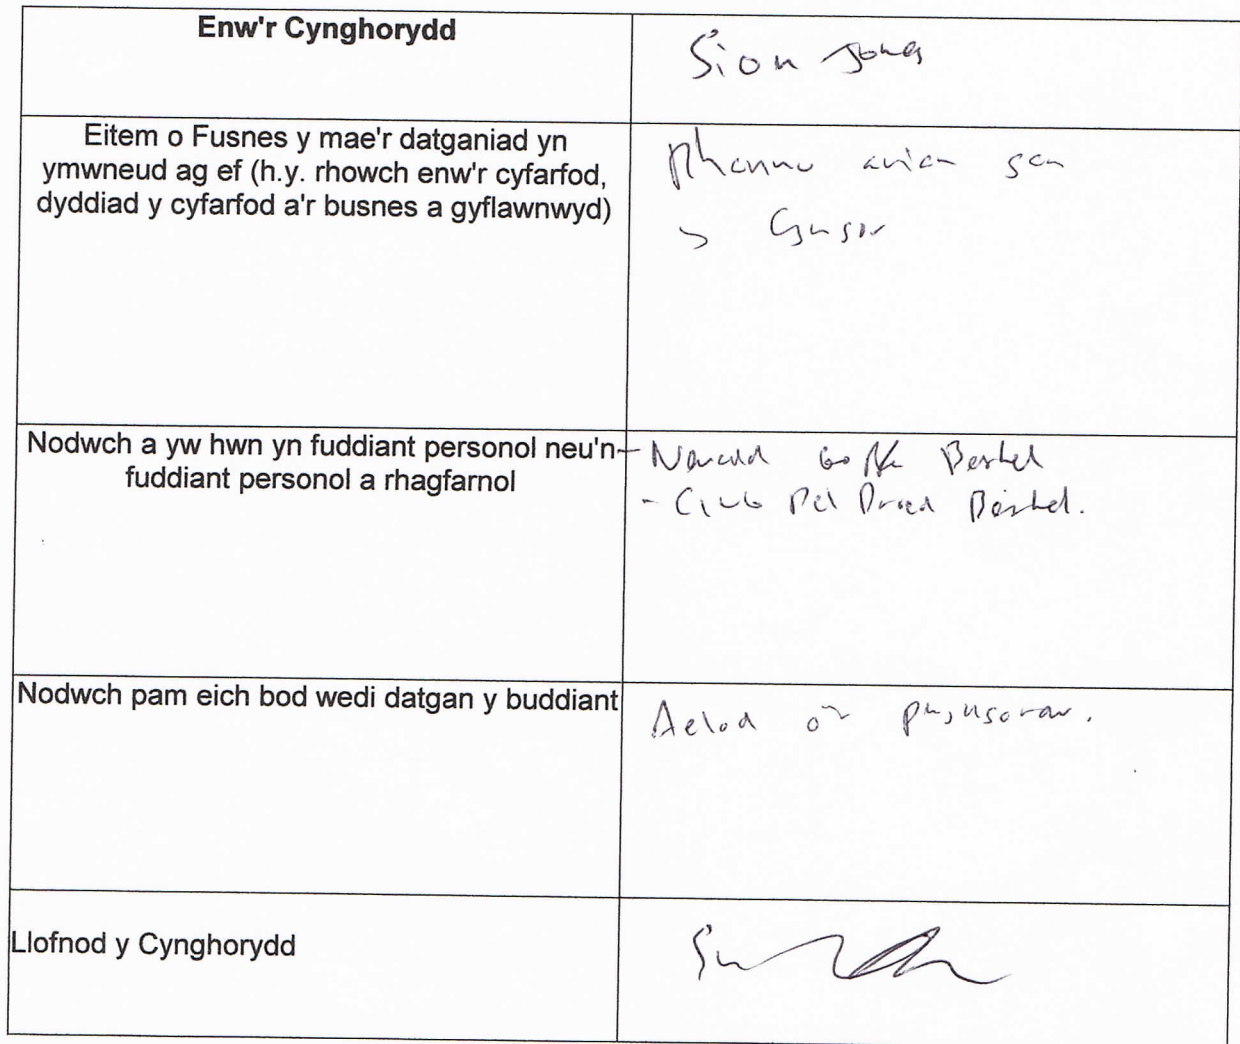 Enw'r Cynghorydd
Sion Jones
Eitem o Fusnes y mae'r datganiad yn
ymwneud ag ef (h.y. rhowch enw'r cyfarfod,
dyddiad y cyfarfod a'r busnes a gyflawnwyd)
Rhannu arian gan
y Cyngor
Nodwch a yw hwn yn fuddiant personol neu'n
fuddiant personol a rhagfarnol
- Neuadd Goffa Bethel
- Clwb Pel Droed Bethel.
Nodwch pam eich bod wedi datgan y buddiant
Aelod o'r pwyllgorau.
Llofnod y Cynghorydd